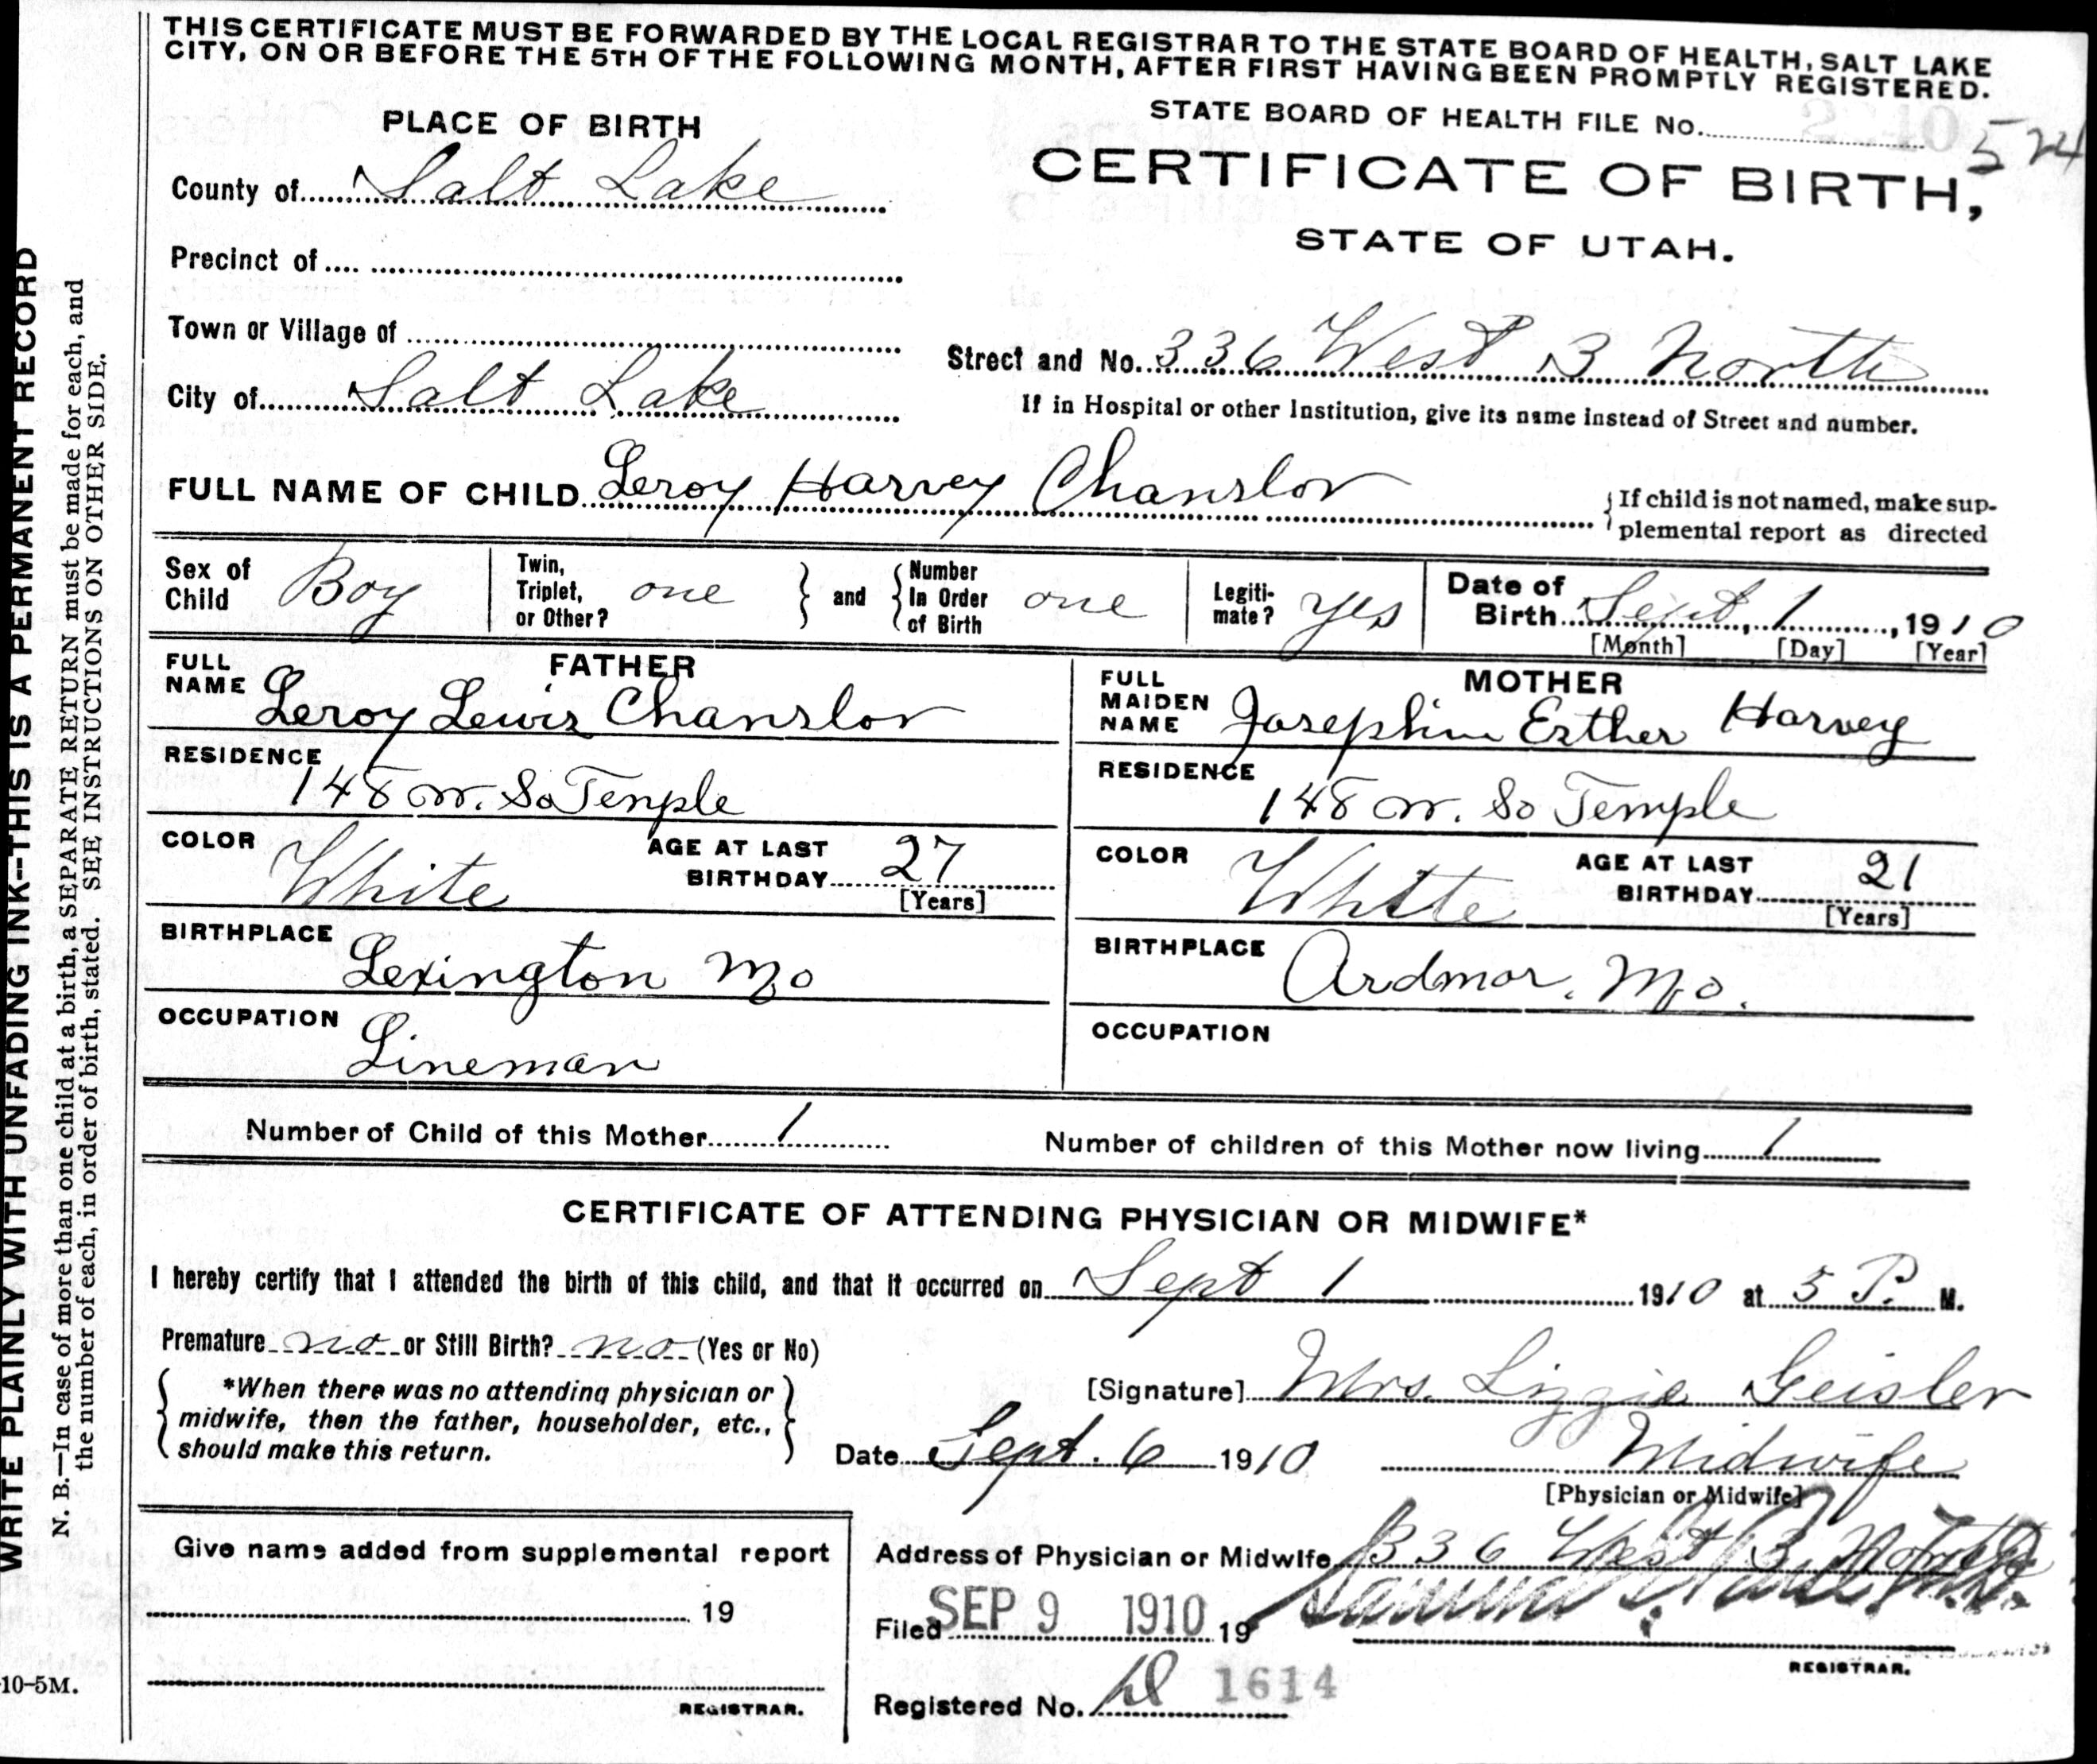 THIS CERTIFICATE MUST BE FORWARDED BY THE LOCAL REGISTRAR TO THE STATE BOARD OF HEALTH, SALT LAKE
CITY, ON OR BEFORE THE 5TH OF THE FOLLOWING MONTH, AFTER FIRST HAVING BEEN PROMPTLY REGISTERED.
PLACE OF BIRTH
STATE BOARD OF HEALTH FILE No. 524
CERTIFICATE OF BIRTH,
STATE OF UTAH.
County of Salt Lake
Precinct of
Town or Village of
Street and No. 336 West 3 North
City of Salt Lake
If in Hospital or other Institution, give its name instead of Street and number.
FULL NAME OF CHILD Leroy Harvey Chanslor
If child is not named, make sup-
plemental report as directed
Sex of Child Boy
Twin, Triplet, or Other? one
and
Number In Order of Birth one
Legiti-mate? yes
Date of Birth Sept, 1, 1910
[Month] [Day] [Year]
FATHER
FULL NAME Leroy Lewis Chanslor
RESIDENCE 148 W. So Temple
COLOR White
AGE AT LAST BIRTHDAY 27
[Years]
BIRTHPLACE Lexington Mo
OCCUPATION Lineman
MOTHER
FULL MAIDEN NAME Josephine Esther Harvey
RESIDENCE 148 W. So Temple
COLOR White
AGE AT LAST BIRTHDAY 21
[Years]
BIRTHPLACE Ardmor, Mo.
OCCUPATION
Number of Child of this Mother 1
Number of children of this Mother now living 1
CERTIFICATE OF ATTENDING PHYSICIAN OR MIDWIFE*
I hereby certify that I attended the birth of this child, and that it occurred on Sept 1 1910 at 5 P. M.
Premature no or Still Birth? no (Yes or No)
*When there was no attending physician or
midwife, then the father, householder, etc.,
should make this return.
[Signature] Mrs. Lizzie Geisler
Date Sept. 6 1910
Midwife
[Physician or Midwife]
Give name added from supplemental report
19
REGISTRAR.
Address of Physician or Midwife 336 West 3 North
Filed SEP 9 1910 19
REGISTRAR.
Registered No. 1614
WRITE PLAINLY WITH UNFADING INK--THIS IS A PERMANENT RECORD
N. B.—In case of more than one child at a birth, a SEPARATE RETURN must be made for each, and
the number of each, in order of birth, stated. SEE INSTRUCTIONS ON OTHER SIDE.
10-5M.